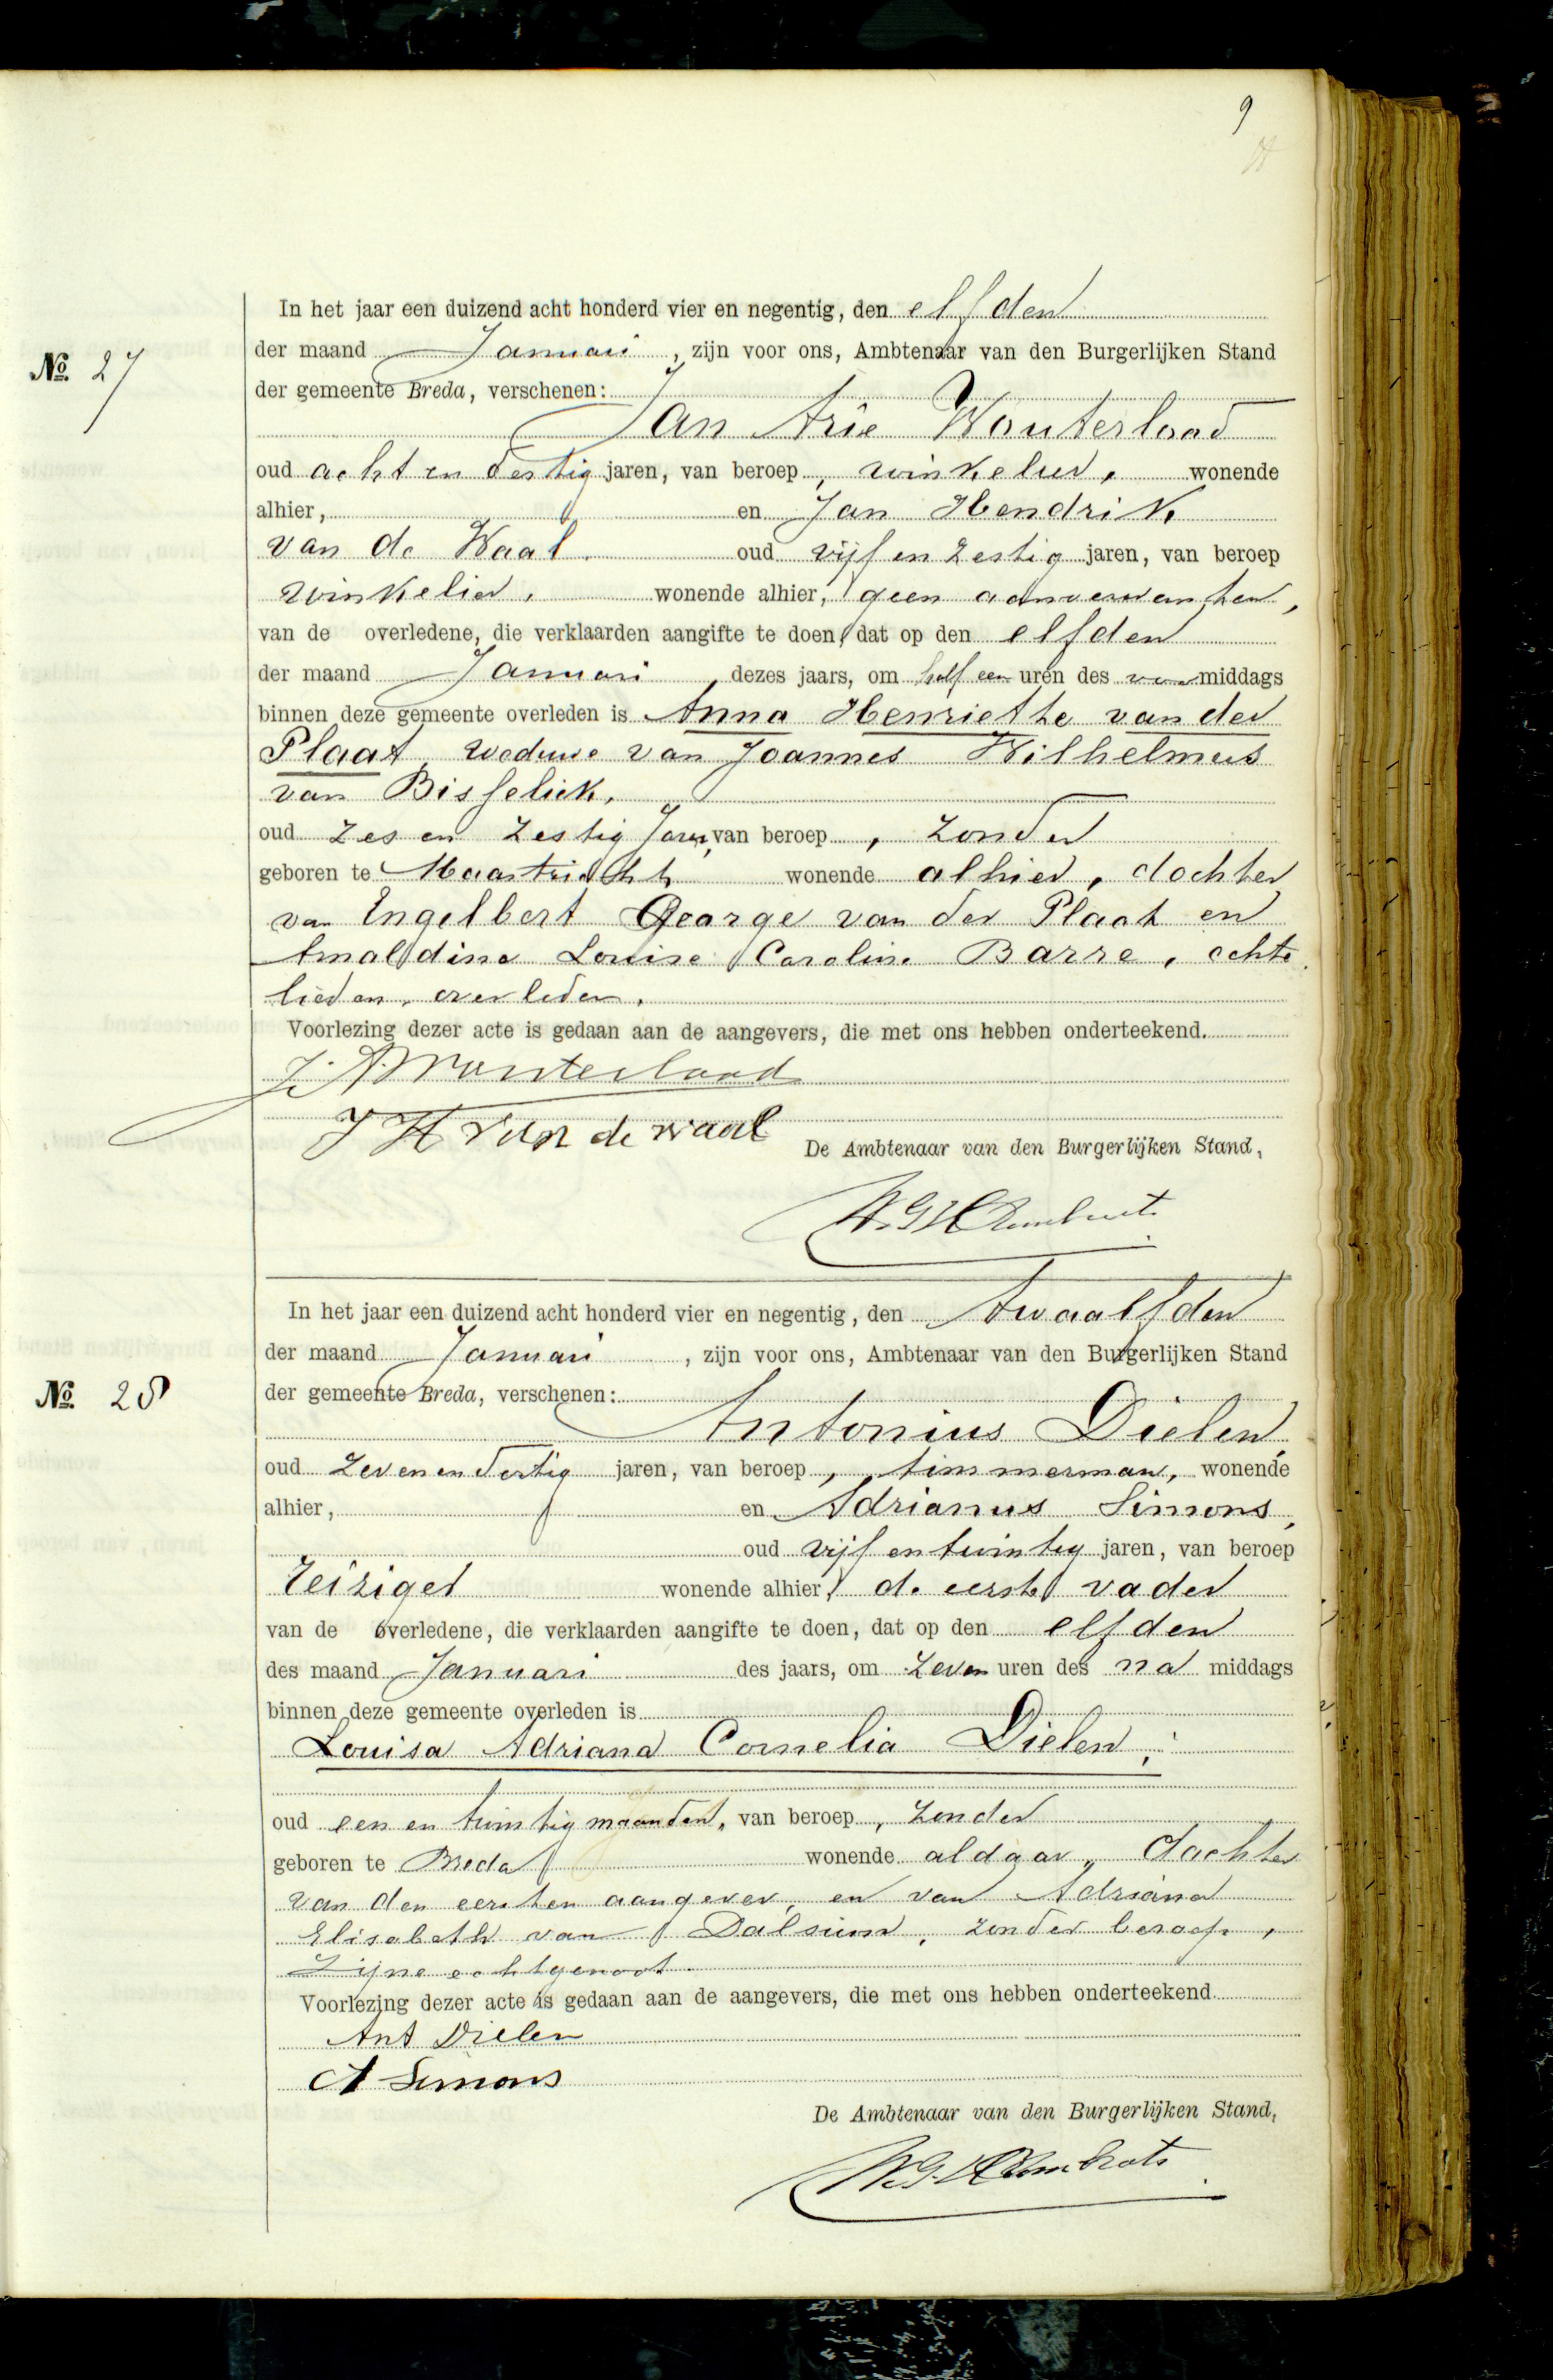 9
In het jaar een duizend acht honderd vier en negentig, den elfden
der maand Januari, zijn voor ons, Ambtenaar van den Burgerlijken Stand
No. 27
der gemeente Breda, verschenen:
Jan Arie Wouterlood
oud acht en dertig jaren, van beroep, winkelier, wonende
alhier, en Jan Hendrik
van de Waal. oud vijf en zestig jaren, van beroep
winkelier, wonende alhier, geen aanverwanten,
van de overledene, die verklaarden aangifte te doen, dat op den elfden
der maand Januari, dezes jaars, om half een uren des voormiddags
binnen deze gemeente overleden is Anna Henriette van der
Plaat, weduwe van Joannes Wilhelmus
van Bisselick,
oud zes en zestig Jaren, van beroep, zonder
geboren te Maastricht wonende alhier, dochter
van Engelbert George van der Plaat en
Louise Caroline Barre, echte
lieden, overleden.
Voorlezing dezer acte is gedaan aan de aangevers, die met ons hebben onderteekend.
J. A. Wouterlood
J H van de Waal
De Ambtenaar van den Burgerlijken Stand,
In het jaar een duizend acht honderd vier en negentig, den twaalfden
der maand Januari, zijn voor ons, Ambtenaar van den Burgerlijken Stand
No. 28
der gemeente Breda, verschenen:
Antonius Dielen,
oud zeven en dertig jaren, van beroep, timmerman, wonende
alhier, en Adrianus Simons,
oud vijf en twintig jaren, van beroep
reiziger wonende alhier, de eerste vader
van de overledene, die verklaarden aangifte te doen, dat op den elfden
des maand Januari des jaars, om zeven uren des na middags
binnen deze gemeente overleden is
Louisa Adriana Cornelia Dielen,
oud een en twintig maanden, van beroep, zonder
geboren te Breda wonende aldaar, dochter
van den eersten aangever, en van Adriana
Elisabeth van Dalsum, zonder beroep,
zijne echtgenoot.
Voorlezing dezer acte is gedaan aan de aangevers, die met ons hebben onderteekend
Ant Dielen
A Simons
De Ambtenaar van den Burgerlijken Stand,